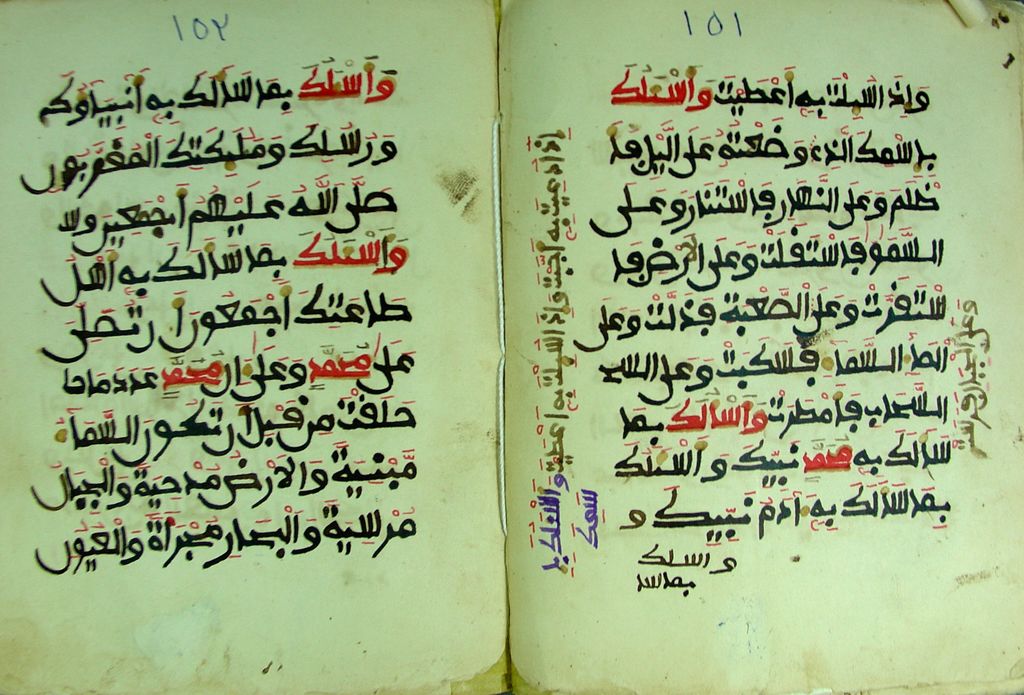 ١٥١
وَإِذَا سُئِلْتَ بِهِ أَعْطَيْتَ وَأَسْئَلُكَ
بِاسْمِكَ الَّذِي وَضَعْتَهُ عَلَى الَّيْلِ فَا
ظْلَمَ وَعَلَى النَّهَارِ فَاسْتَنَارَ وَعَلَى
السَّمٰوٰاتِ فَاسْتَقَلَّتْ وَعَلَى الْأَرْضِ فَا
سْتَقَرَّتْ وَعَلَى الصَّعْبَةِ فَذَلَّتْ وَعَلَى
السَّمَاءِ فَسَكَبَتْ وَعَلَى
السَّحَابِ فَأَمْطَرَتْ وَأَسْأَلُكَ بِمَا
سَأَلَكَ بِهِ مُحَمَّدٌ نَبِيُّكَ وَأَسْئَلُكَ
بِمَا سَأَلَكَ بِهِ آدَمُ نَبِيُّكَ و
وأسئلك
بما سا
إِذَا دُعِيتَ بِهِ أَجَبْتَ وَإِذَا سُئِلْتَ بِهِ أَعْطَيْتَ وَأَسْئَلُكَ بِا
سْمِكَ
وَعَلَى الْجِبَالِ فَرَسَتْ
١٥٢
وَأَسْئَلُكَ بِمَا سَأَلَكَ بِهِ أَنْبِيَاؤُكَ
وَرُسُلُكَ وَمَلَئِكَتُكَ الْمُقَرَّبُونَ
صَلَّى اللَّهُ عَلَيْهِمْ أَجْمَعِينَ
وَأَسْئَلُكَ بِمَا سَأَلَكَ بِهِ أَهْلُ
طَاعَتِكَ أَجْمَعُونَ أَنْ تُصَلِّيَ
عَلَى مُحَمَّدٍ وَعَلَى آلِ مُحَمَّدٍ عَدَدَ مَا
خَلَقْتَ مِنْ قَبْلِ أَنْ تَكُونَ السَّمَاءُ
مَبْنِيَّةً وَالْأَرْضُ مَدْحِيَّةً وَالْجِبَالُ
مُرْسِيَةً وَالْبِحَارُ مَجْرَاةً وَالْعُيُونُ